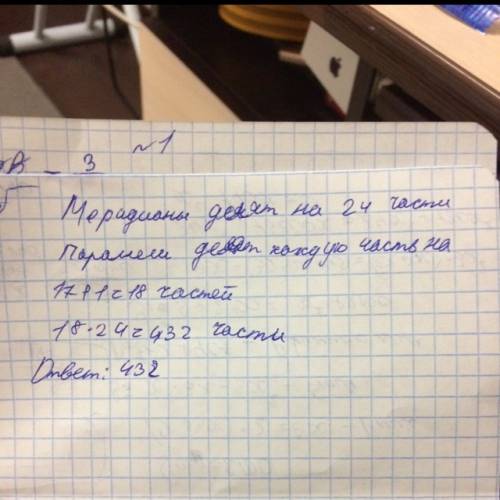 №1
3
Меридианы делят на 24 части
Параллели делят каждую часть на
17+1=18 частей
18·24=432 части
Ответ: 432